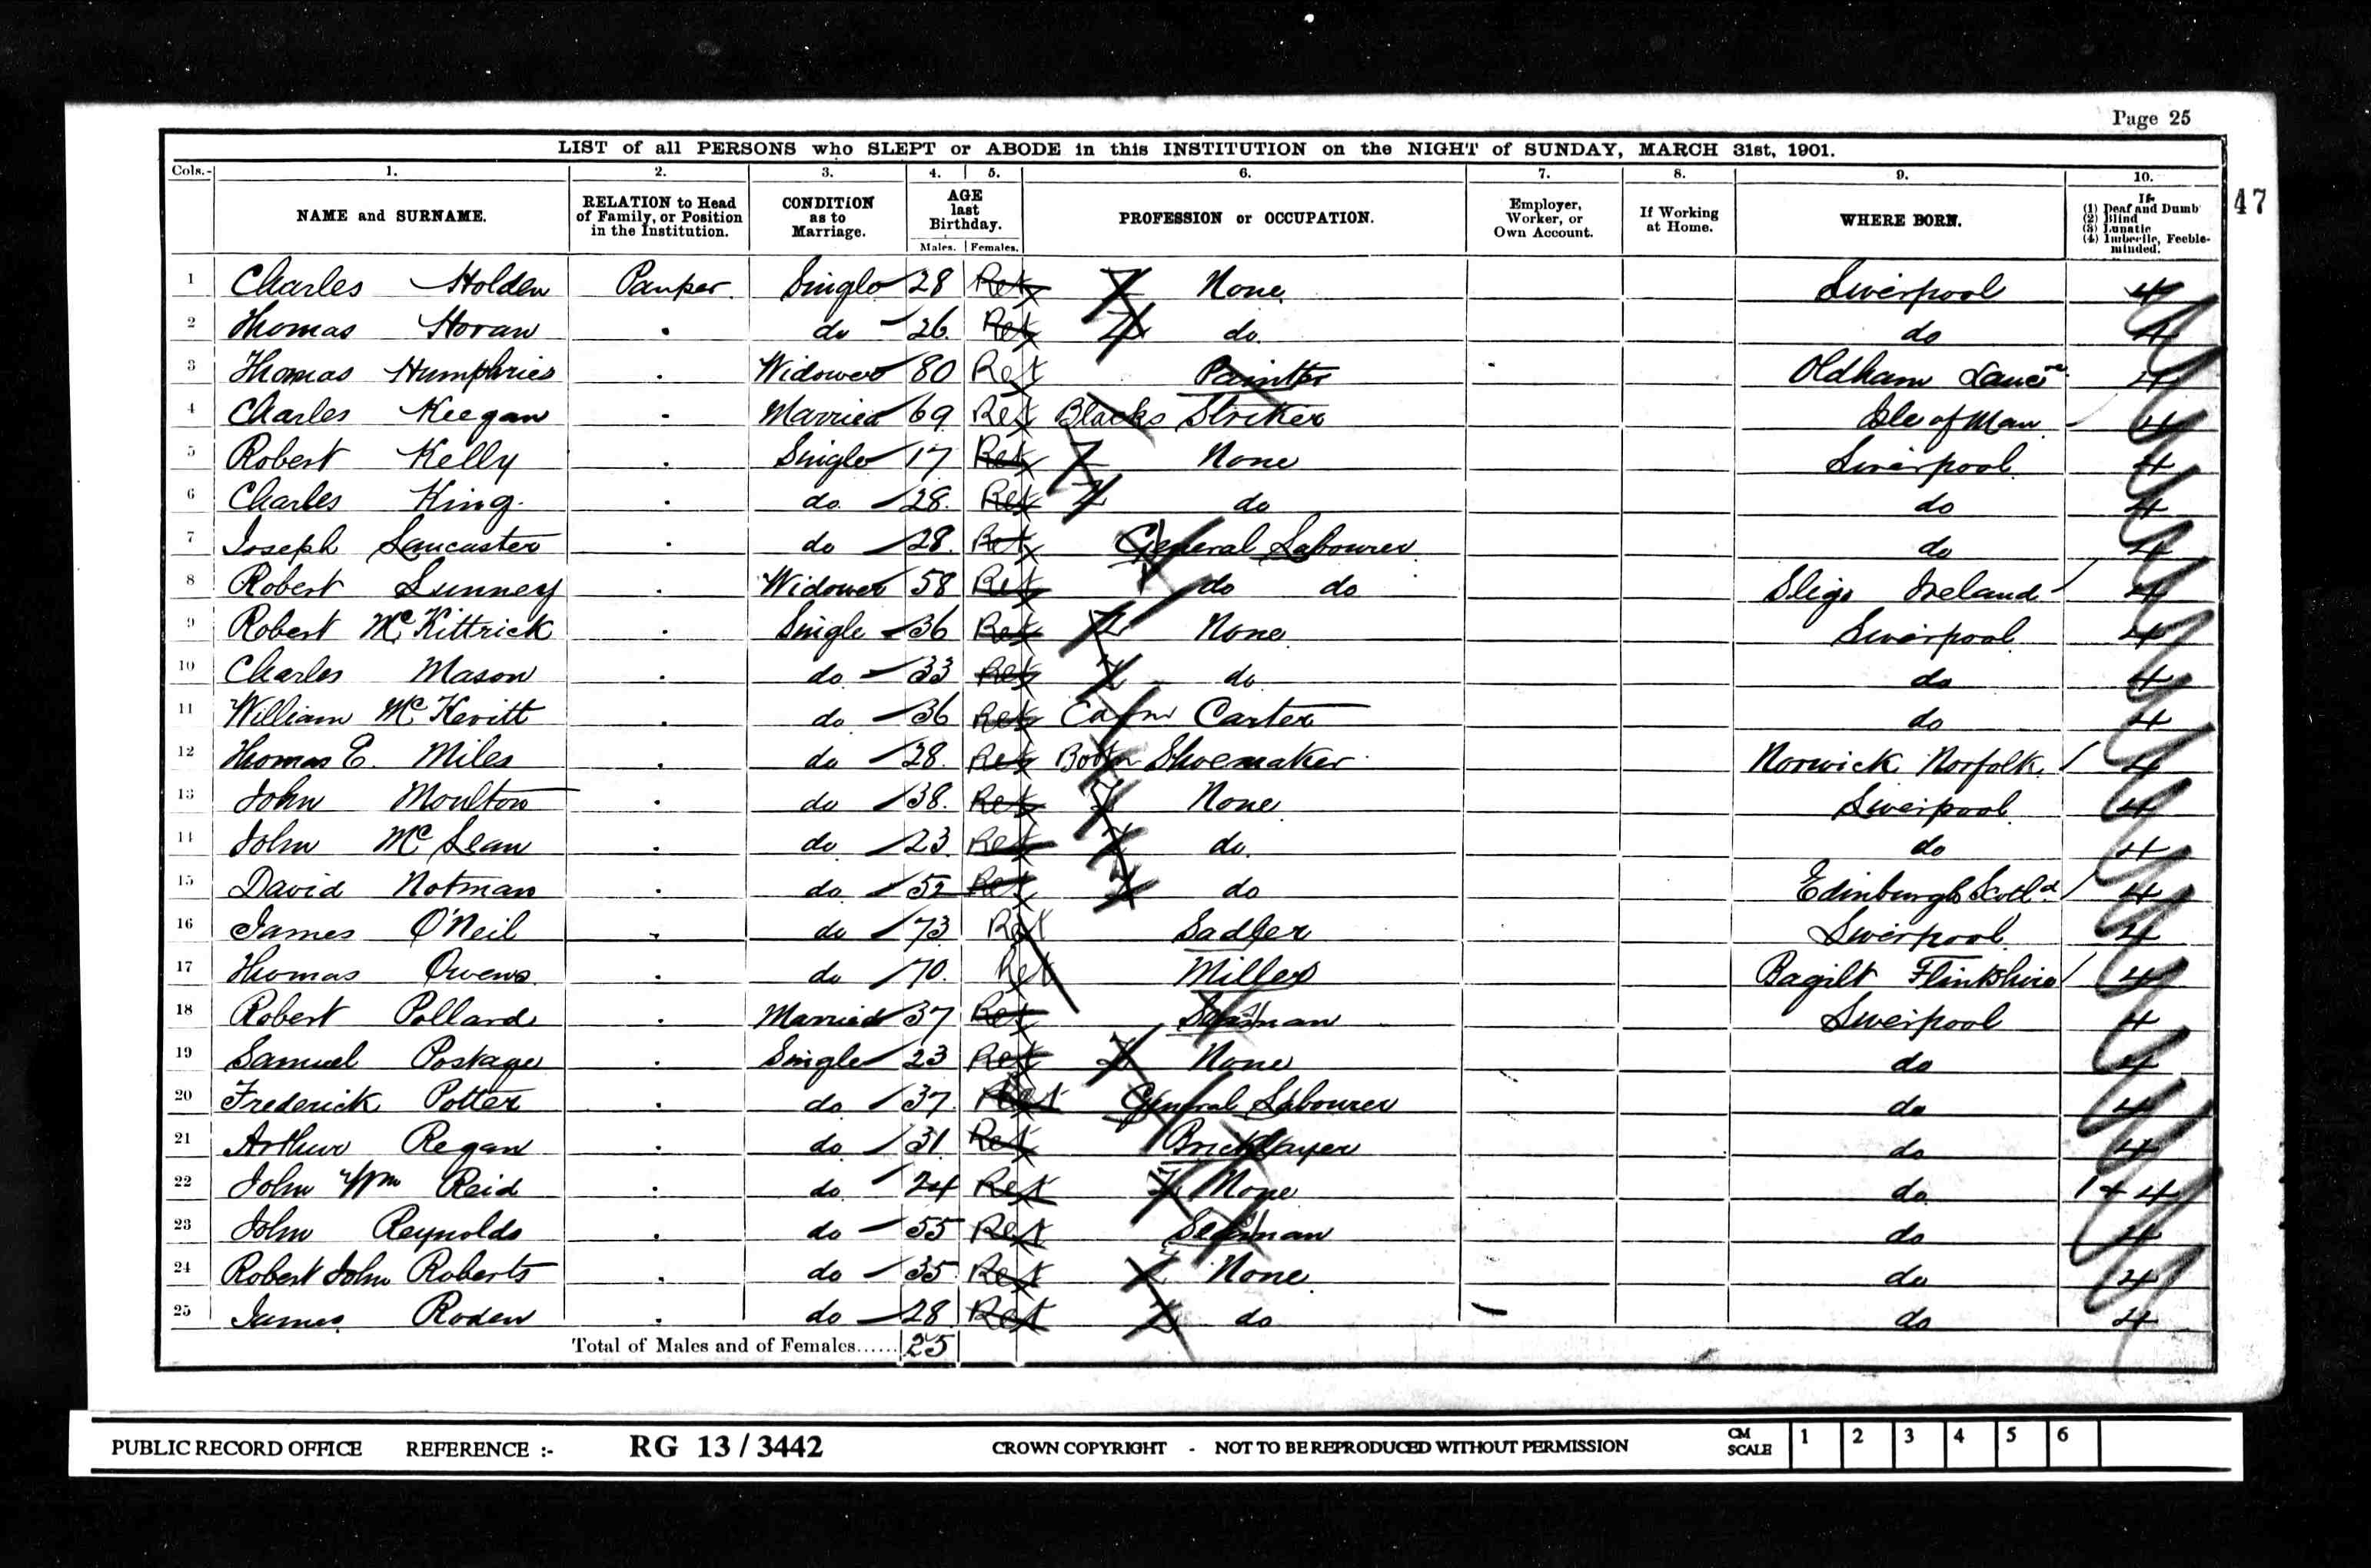 Page 25
LIST of all PERSONS who SLEPT or ABODE in this INSTITUTION on the NIGHT of SUNDAY, MARCH 31st, 1901.
Cols.- 1. 2. 3. 4. 5. 6. 7. 8. 9. 10.
NAME and SURNAME. RELATION to Head of Family, or Position in the Institution. CONDITION as to Marriage. AGE last Birthday. Males. Females. PROFESSION or OCCUPATION. Employer, Worker, or Own Account. If Working at Home. WHERE BORN. If (1) Deaf and Dumb (2) Blind (3) Lunatic (4) Imbecile, Feeble-minded.
47
1 Charles Holden Pauper Single 28 Ret None Liverpool 4
2 Thomas Horan do 26 Ret do do 4
3 Thomas Humphries Widower 80 Ret Painter Oldham Lanc 4
4 Charles Keegan Married 69 Ret Blacks Striker Isle of Man 4
5 Robert Kelly Single 17 Ret None Liverpool 4
6 Charles King do 28 Ret do do 4
7 Joseph Lancaster do 28 Ret General Labourer do 4
8 Robert Lunney Widower 58 Ret do do Sligo Ireland 4
9 Robert McKittrick Single 36 Ret None Liverpool 4
10 Charles Mason do 33 Ret do do 4
11 William McKevitt do 36 Ret Carter do 4
12 Thomas E. Miles do 28 Ret Shoemaker Norwick Norfolk 4
13 John Moulton do 38 Ret None Liverpool 4
14 John McLean do 23 Ret do do 4
15 David Notman do 52 Ret do Edinburgh Scotld 4
16 James O'Neil do 73 Ret Sadler Liverpool 4
17 Thomas Owens do 70 Ret Miller Bagilt Flintshire 4
18 Robert Pollard Married 37 Ret Seaman Liverpool 4
19 Samuel Postage Single 23 Ret None do 4
20 Frederick Potter do 37 Ret General Labourer do 4
21 Arthur Regan do 31 Ret Bricklayer do 4
22 John Wm Reid do 24 Ret None do 1 + 4
23 John Reynolds do 55 Ret Seaman do 4
24 Robert John Roberts do 35 Ret None do 4
25 James Roden do 28 Ret do do 4
Total of Males and of Females...... 25
PUBLIC RECORD OFFICE REFERENCE :- RG 13 / 3442 CROWN COPYRIGHT - NOT TO BE REPRODUCED WITHOUT PERMISSION CM SCALE 1 2 3 4 5 6